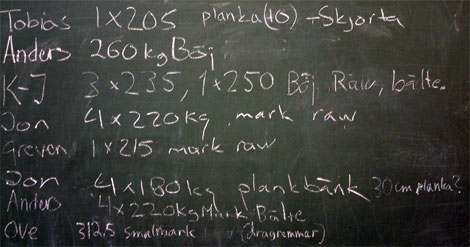 Tobias 1x205 planka(10) -Skjorta
Anders 260kg Böj
K-J 3x235, 1x250 Böj Raw, bälte.
Jon 4x220kg mark raw
Greven 1x215 mark raw
Jon 4x180kg plankbänk 30cm planka?
Anders 4x220kg Mark Bälte
Ove 312,5 smalmark (dragremmar)